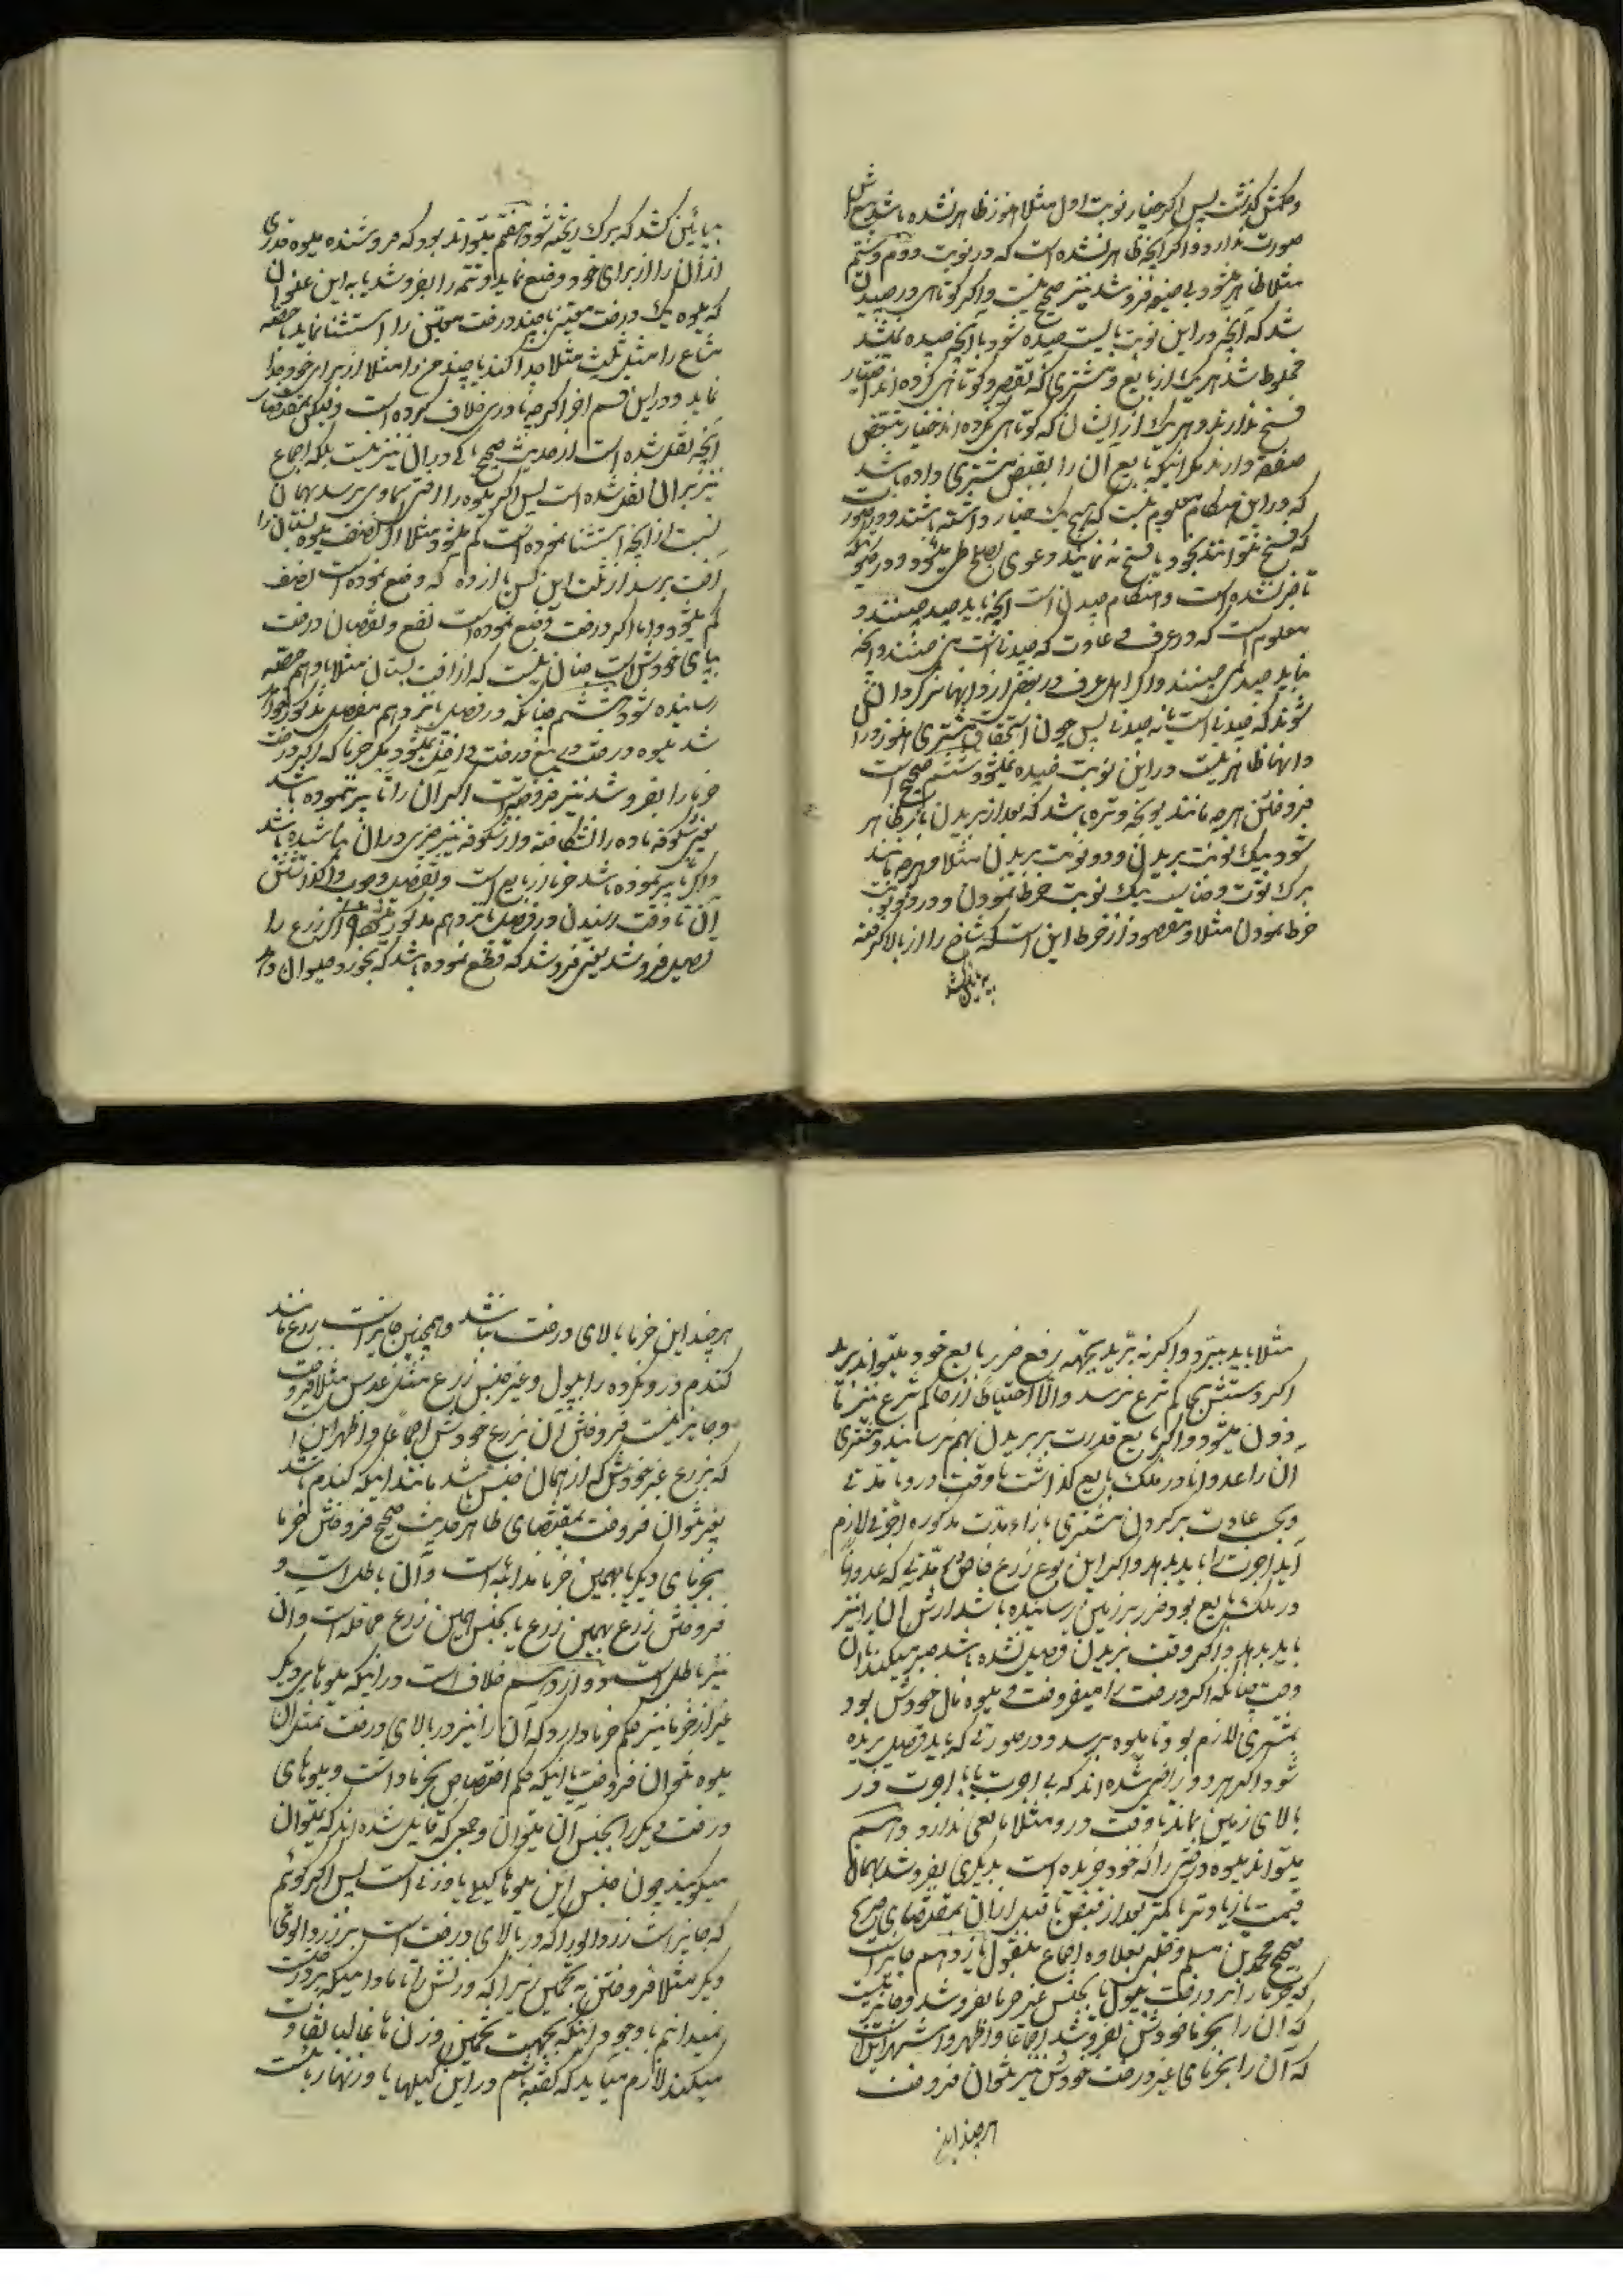 وحکمش گذشت پس اگر خیار نوبت اول مثلا هنوز ظاهر نشده باشد بیع
صورت ندارد و اگر آنچه ظاهر نشده است که در نوبت دوم و سیّم
مثلا ظاهر میشود بی ضمیمه فروشد نیز صحیح نیست و اگر کوتاهی در چیدن
شد که آنچه در این نوبت بایست چیده شود با آنچه چیده نمیشد
مخلوط شد هر یک از بایع و مشتری که تقصیر و کوتاهی کرده اند اختیار
فسخ ندارند و هر یک از ایشان که کوتاهی نکرده اند خیار تبعض
صفقه دارند مگر اینکه بایع آن را بقبض مشتری داده باشد
که در این هنگام معلوم نیست که هیچ یک خیار داشته باشند و در صورت
که فسخ نتوانند نمود یا فسخ نه نمایند دعوی بصلح طی میشود و در صورتیکه
تاخیر نشده است و هنگام چیدن است آنچه باید چید چینند و
معلوم است که در عرف و عادت که چیدنی است می چینند و آنچه
نباید چید نمی چینند و اگر اهل عرف در بعضی از دانها سرگردان
شوند که چیدنی است یا نه چیدنی پس چون استحقاق مشتری هنوز در آن
دانها ظاهر نیست در این نوبت چیده نمیشود ششم صحیح است
فروختن هرچه مانند یونجه و تره باشد که بعد از بریدن باز ظاهر
شود بیک نوبت بریدن و دو نوبت بریدن مثلا و هرچه مانند
برک توت و حنا است بیک نوبت خرط نمودن و در دو نوبت
خرط نمودن مثلا و مقصود از خرط این است که شاخ را از بالا گرفته
به پائین کشد
بپائین کشد که برک ریخته شود هفتم میتواند بود که فروشنده میوه قدری
از آن را از برای خود وضع نماید و تتمه را بفروشد یا به این عنوان
که میوه یک درخت معین یا چند درخت معین را استثنا نماید یا حصه
مشاع را مثل ثلث مثلا جدا کند یا چند من را مثلا از برای خود جدا
نماید و در این قسم آخر اگرچه نادری خلاف کرده است ولیکن بمقتضای
آنچه نقل شده است از حدیث صحیح باکی در آن نیز نیست بلکه اجماع
نیز بر آن نقل شده است پس اگر میوه را آفتی سماوی برسد بهمان
نسبت از آنچه استثنا نموده است کم میشود مثلا اگر نصف میوه بستان را
آفت برسد از ثلث این کس یا از ده که وضع نموده است نصف
کم میشود و اما اگر درخت وضع نموده است نفع و نقصان درخت
بپای خودش است چنان نیست که از آفت بستان مثلا باو هم حصه
رسانیده شود هشتم چنانکه در فصل پانزدهم مفصل مذکور خواهد
شد میوه درخت در بیع درخت داخل نمیشود مگر خرما که اگر درخت
خرما را بفروشد نیز فروخته است اگر آن را تأبیر ننموده باشد
یعنی شکوفه ماده را نشکافته و از شکوفه نیز چیزی در آن نپاشیده باشد
و اگر تأبیر نموده باشد خرما از بایع است و تفصیل وجوب واگذاشتن
آن تا وقت رسیدن در فصل پانزدهم مذکور میشود نهم اگر زرع را
قصیل فروشد یعنی فروشد که قطع نموده باشد که بخورد حیوان دهد
مثلا باید ببرد و اگر نه ببرد بجهة رفع ضرر بایع خود میتواند برید
اگر دستش بحاکم شرع نرسد والّا احتیاطا از حاکم شرع نیز مأ
ذون میشود و اگر بایع قدرت بر بریدن بهم نرسانید و مشتری
آن را عدوانا در ملک بایع گذاشت تا وقت درو یا مدتی
و بحسب عادت بر گردن مشتری بازاء مدت مذکوره اجرتی لازم
آید اجرت را باید بدهد و اگر این نوع زرع خاص در مدتی که عدوانا
در ملک بایع بود ضرر بزمین رسانیده باشد ارش آن را نیز
باید بدهد و اگر وقت بریدن قصیل نشده باشد صبر میکند تا آن
وقت چنانکه اگر درخت را میفروخت و میوه مال خودش بود
بمشتری لازم بود تا میوه برسد و در صورتی که باید قصیل بریده
شود اگر هر دو راضی شده اند که بی اجرت یا با اجرت در
بالای زمین بماند تا وقت درو مثلا مانعی ندارد دهم
میتواند میوه درختی را که خود خریده است بدیگری بفروشد بهمان
قیمت یا زیادتر یا کمتر بعد از قبض یا قبل از آن بمقتضای صریح
صحیح محمد بن مسلم و حلبی بعلاوه اجماع منقول یازدهم جایز است
که خرما را بر درخت بپول یا بجنس غیر خرما بفروشد و جایز نیست
که آن را بخرما خودش بفروشد اجماعا و اظهر و اشهر این است
که آن را بخرمای غیر درخت خودش نیز نتوان فروخت
هر چند این
هر چند این خرما بالای درخت نباشد و همچنین جایز است زرع مانند
گندم درو نکرده را بپول و غیر جنس زرع مثل عدس مثلا فروخت
و جایز نیست فروختن آن بزرع خودش اجماعا و اظهر این است
که بزرع غیر خودش که از همان جنس باشد مانند اینکه گندم باشد
نیز نتوان فروخت بمقتضای ظاهر حدیث صحیح فروختن خرما
بخرمای دیگر یا بهمین خرما مزابنه است و آن باطل است و
فروختن زرع بهمین زرع یا بجنس همین زرع محاقله است و آن
نیز باطل است دوازدهم خلاف است در اینکه میوهای دیگر
غیر از خرما نیز حکم خرما دارد که آن را نیز در بالای درخت بمثل آن
میوه نتوان فروخت یا اینکه حکم اختصاص بخرما داشت و میوهای
درخت دیگر را بجنس آن میتوان و جمعی که قایل شده اند که نمیتوان
میگویند چون جنس این میوها کیلی یا وزنی است پس اگر گوئیم
که جایز است زردآلو را که در بالای درخت است بزردآلوی
دیگر مثلا فروختن به تخمین زیرا که وزنش را تا مادامیکه بر درخت است
نمیدانیم با وجود اینکه بجهت تخمین وزن ما غالبا تفاوت
میکند لازم میاید که گفته باشیم در این کیلها یا وزنها ربا نیست